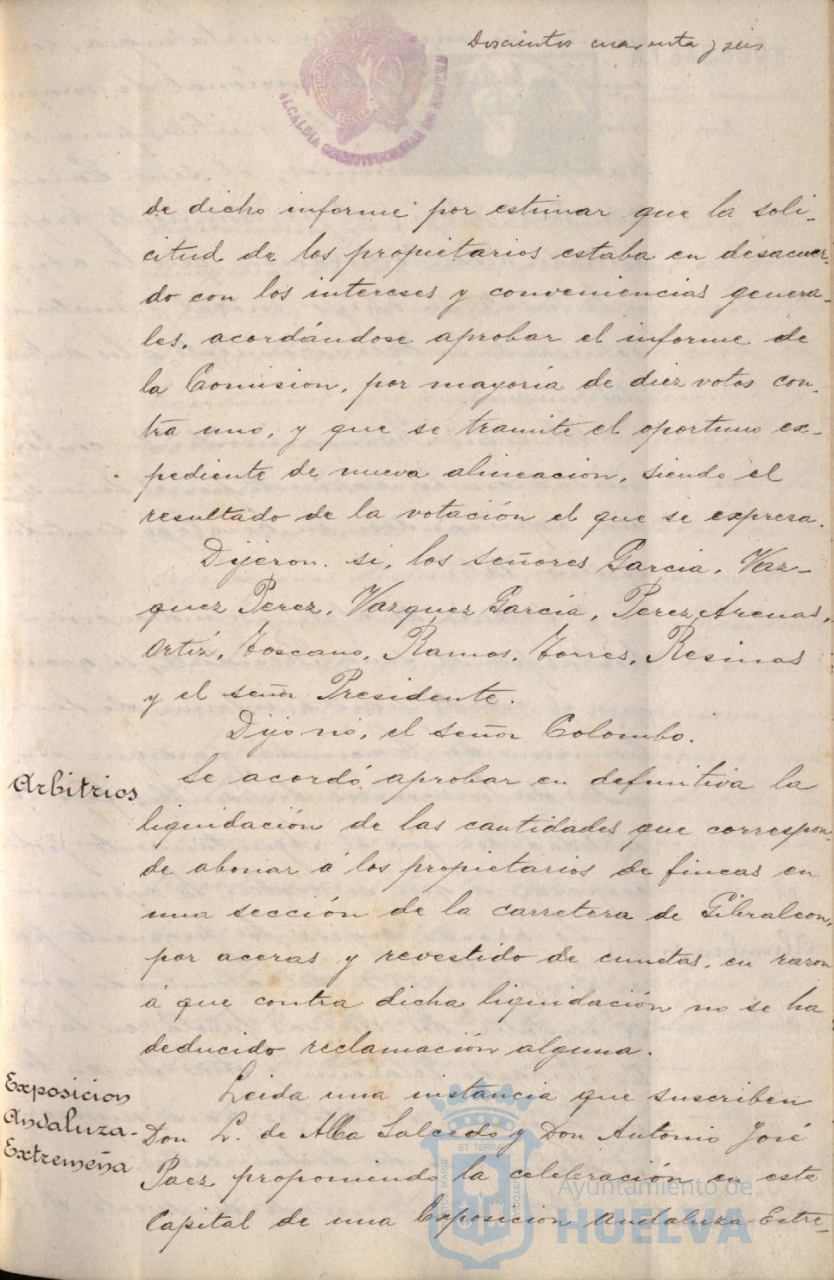 Doscientos cuarenta y seis
ALCALDIA CONSTITUCIONAL DE HUELVA
de dicho informe por estimar que la soli-
citud de los propietarios estaba en desacuer-
do con los intereses y conveniencias genera-
les, acordándose aprobar el informe de
la Comision, por mayoría de diez votos con-
tra uno, y que se tramite el oportuno ex-
pediente de nueva alineacion, siendo el
resultado de la votación el que se expresa.
Dijeron si, los señores Garcia, Vaz-
quez Perez, Vazquez Garcia, Perez Arenas,
Ortiz, Toscano, Ramos, Torres, Resinas
y el señor Presidente.
Dijo nó, el señor Colombo.
Arbitrios
Se acordó aprobar en definitiva la
liquidación de las cantidades que correspon-
de abonar á los propietarios de fincas en
una sección de la carretera de Gibraleon,
por aceras y revestido de cunetas, en razon
á que contra dicha liquidación no se ha
deducido reclamación alguna.
Exposicion
Andaluza-
Extremeña
Leida una instancia que suscriben
Don L. de Alba Salcedo y Don Antonio José
Paez proponiendo la celebración en esta
Capital de una Exposicion Andaluza-Estre-
Ayuntamiento de
HUELVA